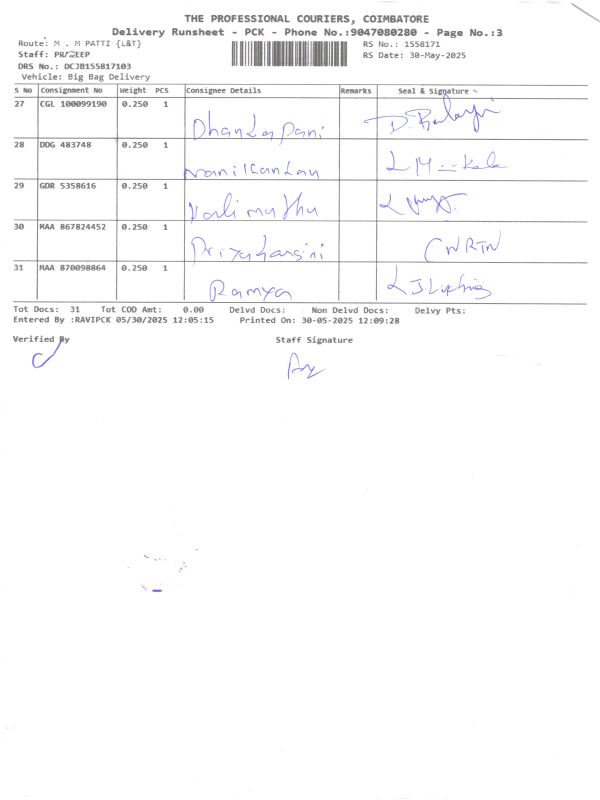 THE PROFESSIONAL COURIERS, COIMBATORE
Delivery Runsheet - PCK - Phone No.:9047080280 - Page No.:3
Route: M . M PATTI {L&T} RS No.: 1558171
Staff: RS Date: 30-May-2025
DRS No.: DCJB155817103
Vehicle: Big Bag Delivery
S No Consignment No Weight PCS Consignee Details Remarks Seal & Signature
27 CGL 100099190 0.250 1 Dhandapani D. Balaji
28 DDG 483748 0.250 1 manikandan
29 GDR 5358616 0.250 1
30 MAA 867824452 0.250 1 Priyaharsini
31 MAA 870098864 0.250 1 Ramya
Tot Docs: 31 Tot COD Amt: 0.00 Delvd Docs: Non Delvd Docs: Delvy Pts:
Entered By :RAVIPCK 05/30/2025 12:05:15 Printed On: 30-05-2025 12:09:28
Verified By Staff Signature